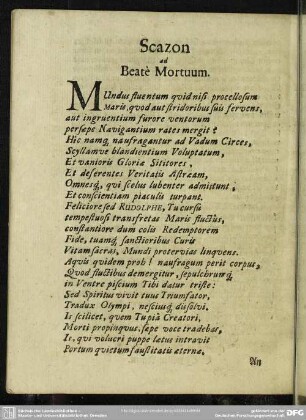 Scazon
ad
Beatè Mortuum.
MUndus fluentum qvid nisi procellosum
Maris, qvod aut stridoribus suis fervens,
aut ingruentium furore ventorum
persæpe Navigantium rates mergit?
Hic namq; naufragantur ad Vadum Circes,
Scyllamve blandientium Voluptatum,
Et vanioris Gloriæ Sititores,
Et deserentes Veritatis Astræam,
Omnesq; qvi scelus lubenter admittunt,
Et conscientiam piaculi turpant.
Feliciore sed RUDOLPHE, Tu cursu
tempestuosi transfretas Maris fluctus,
constantiore dum colis Redemptorem
Fide, tuamq; sanctioribus Curis
Vitam sacrai, Mundi protervias linqvens.
Aqvis qvidem proh! naufragum perit corpus,
Qvod fluctibus demergitur, sepulchrumq;
in Ventre piscium Tibi datur triste:
Sed Spiritus vivit tuus Tranfator,
Tradux Olympi, nesciusq; dissolvi.
Is scilicet, qvem Tu piâ Creatori,
Morti propinqvus, sæpe voce tradebas,
It, qvi volucri puppe latus intravit
Portum qvietum faustitatis æternæ.
An